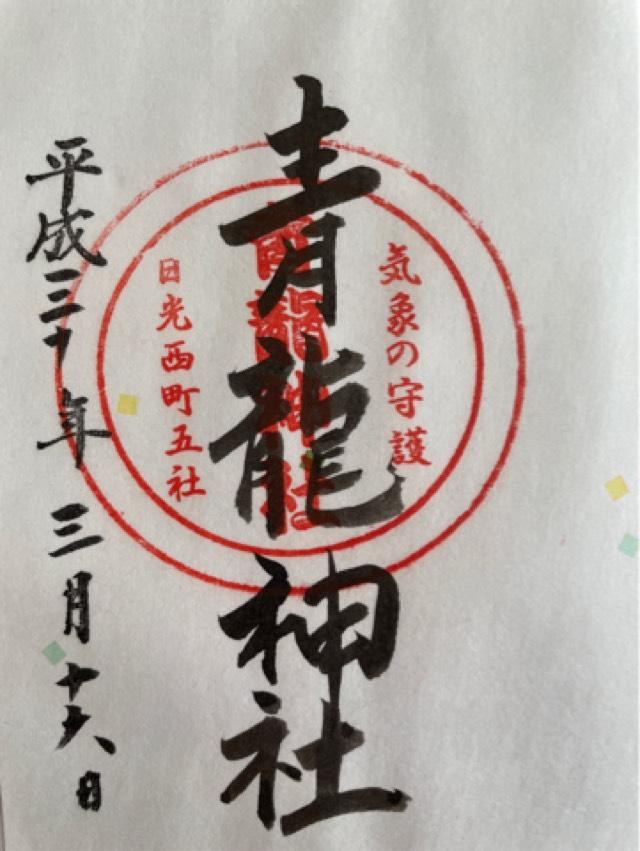 気象の守護
青龍神社
青龍神社
日光西町五社
平成三一年三月十六日